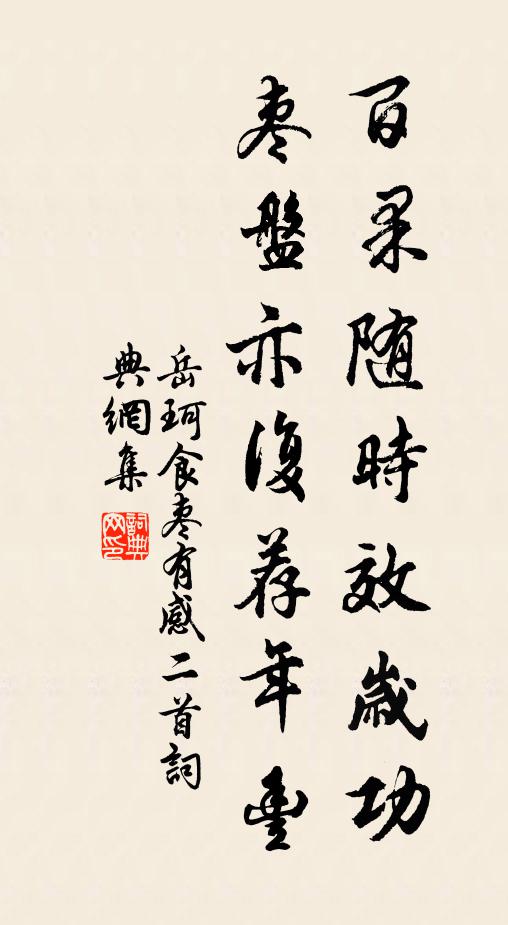 百果随時效歲功
枣盤亦復荐年豊
岳珂食枣有感二首詞
典網集
詞典
网印